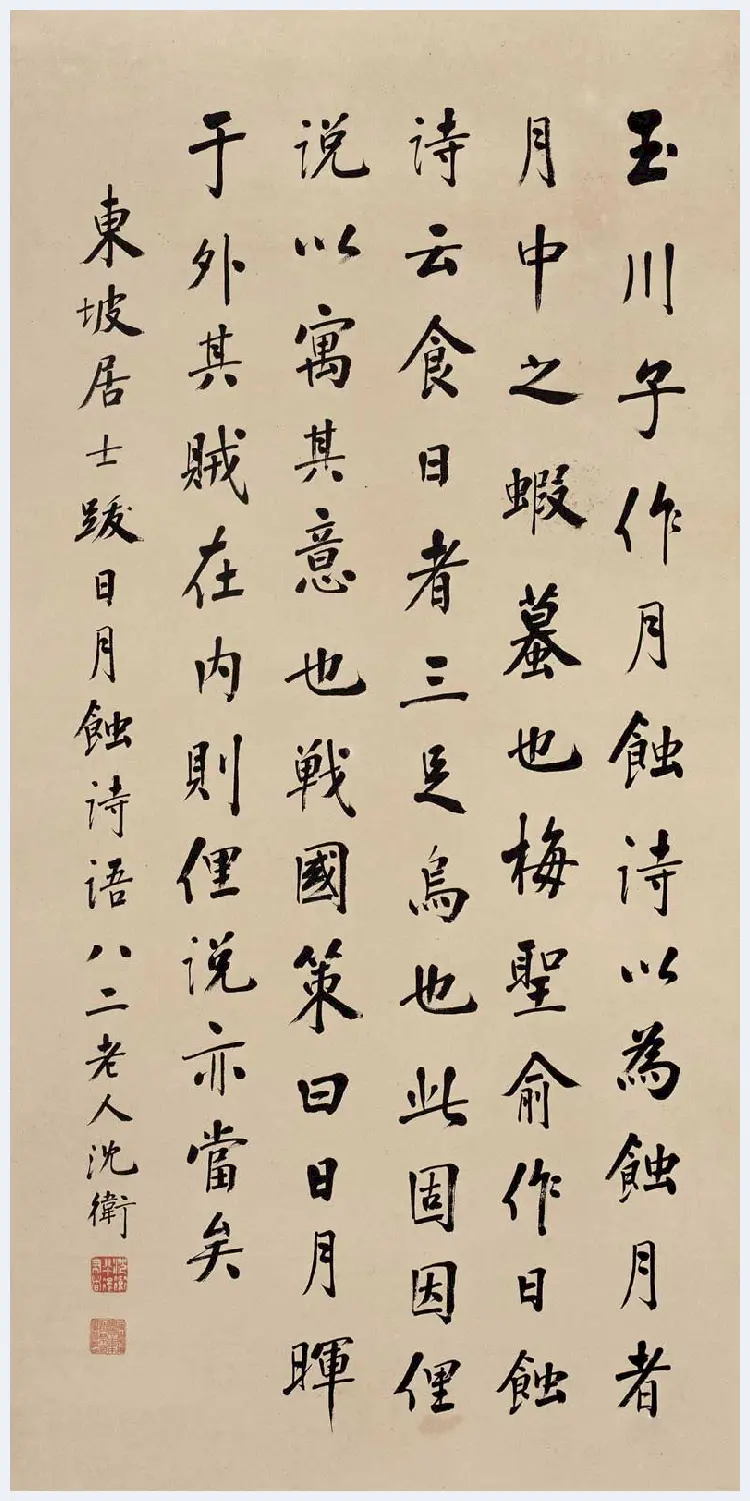 玉川子作月蝕诗以為蝕月者
月中之蝦蟇也梅聖俞作日蝕
诗云食日者三足烏也此固因俚
说以寓其意也戦國策曰日月暉
于外其賊在内則俚说亦當矣
東坡居士跋日月蝕诗语八二老人沈衛